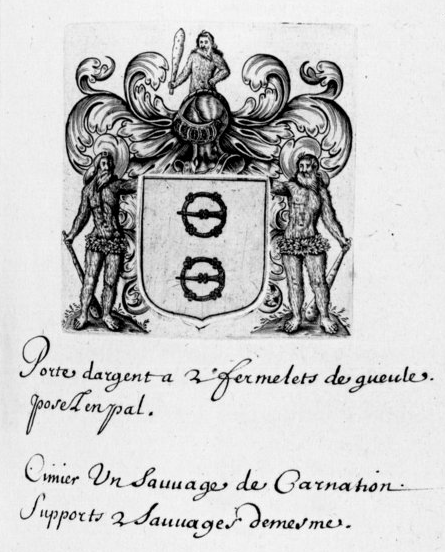 Porte dargent a 2 fermelets de gueule.
posez en pal.
Cimier Un Sauuage de Carnation.
Supports 2 Sauuages demesme.